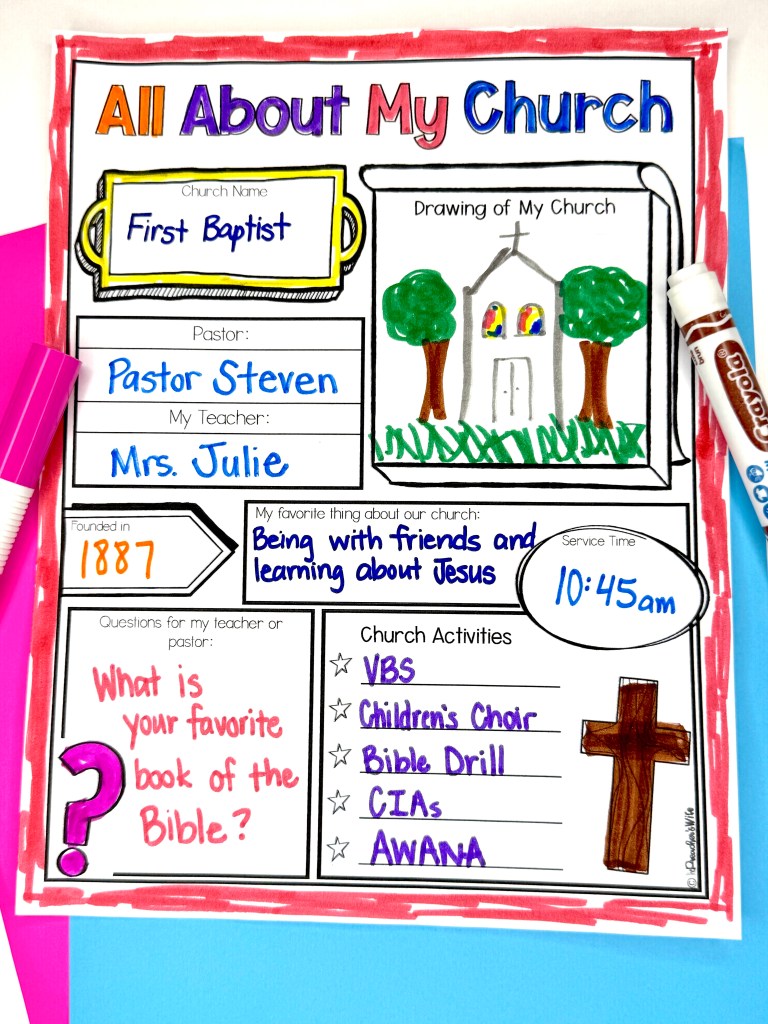 All About My Church
Church Name
First Baptist
Drawing of My Church
Pastor:
Pastor Steven
My Teacher:
Mrs. Julie
Founded in
1887
My favorite thing about our church:
Being with friends and
learning about Jesus
Service Time
10:45am
Questions for my teacher or
pastor:
What is
your favorite
book of the
Bible?
?
Church Activities
VBS
Children's Choir
Bible Drill
CIAs
AWANA
Crayola